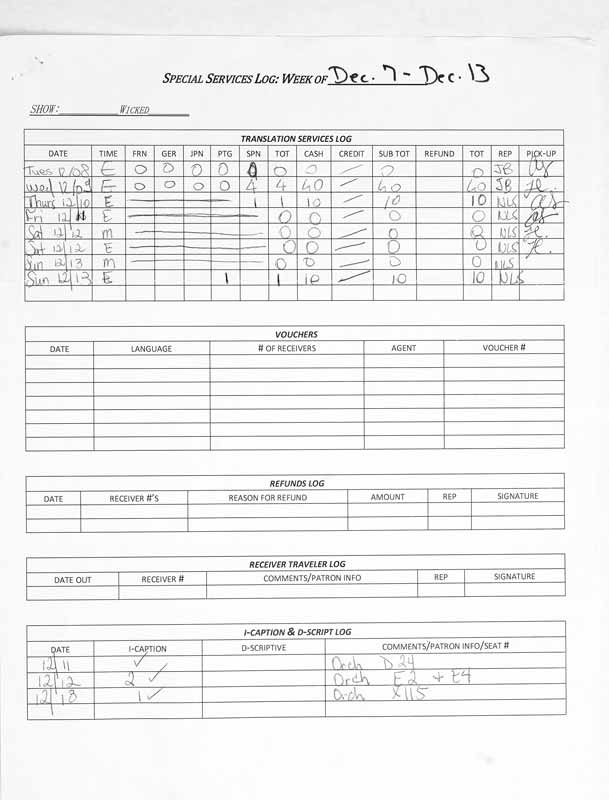 SPECIAL SERVICES LOG: WEEK OF Dec. 7 - Dec. 13
SHOW: WICKED
TRANSLATION SERVICES LOG
DATE TIME FRN GER JPN PTG SPN TOT CASH CREDIT SUB TOT REFUND TOT REP PICK-UP
Tues 12/08 E 0 0 0 0 0 0 0 0 0 JB
Wed 12/09 E 0 0 0 0 4 4 40 40 40 JB
Thurs 12/10 E 1 1 10 10 10 NLS
Fri 12/11 E 0 0 0 0 NLS
Sat 12/12 m 0 0 0 0 NLS
Sat 12/12 E 0 0 0 0 NLS
Sun 12/13 m 0 0 0 0 NLS
Sun 12/13 E 1 1 10 10 10 NLS
VOUCHERS
DATE LANGUAGE # OF RECEIVERS AGENT VOUCHER #
REFUNDS LOG
DATE RECEIVER #'S REASON FOR REFUND AMOUNT REP SIGNATURE
RECEIVER TRAVELER LOG
DATE OUT RECEIVER # COMMENTS/PATRON INFO REP SIGNATURE
I-CAPTION & D-SCRIPT LOG
DATE I-CAPTION D-SCRIPTIVE COMMENTS/PATRON INFO/SEAT #
12/11 ✓ Orch D24
12/12 2 ✓ Orch E2 + E4
12/13 1 ✓ Orch X115